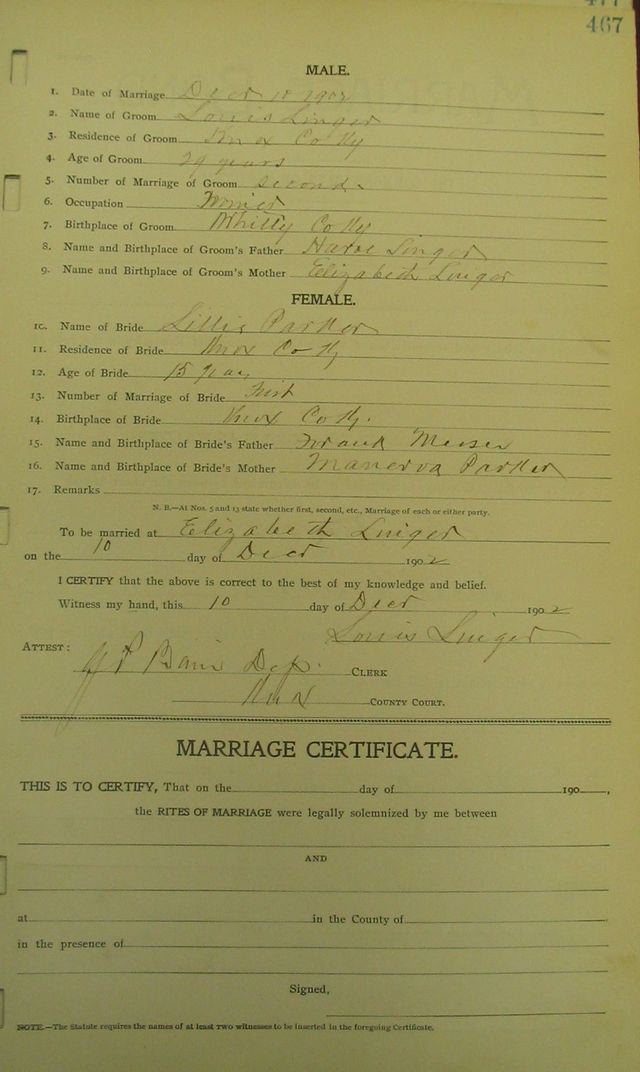 467
MALE.
1. Date of Marriage Decr 10 1902
2. Name of Groom Louis Linger
3. Residence of Groom Knox Co Ky
4. Age of Groom 29 years
5. Number of Marriage of Groom second
6. Occupation Farmer
7. Birthplace of Groom Whitly Co Ky
8. Name and Birthplace of Groom's Father Linger
9. Name and Birthplace of Groom's Mother Elizabeth Linger
FEMALE.
10. Name of Bride Lillie Parker
11. Residence of Bride Knox Co Ky
12. Age of Bride 15 years
13. Number of Marriage of Bride First
14. Birthplace of Bride Knox Co Ky.
15. Name and Birthplace of Bride's Father Frank
16. Name and Birthplace of Bride's Mother Manerva Parker
17. Remarks
N. B.—At Nos. 5 and 13 state whether first, second, etc., Marriage of each or either party.
To be married at Elizabeth Linger
on the 10 day of Decr 1902
I CERTIFY that the above is correct to the best of my knowledge and belief.
Witness my hand, this 10 day of Decr, 1902
Louis Linger
ATTEST: Bain Dep. CLERK
Knox COUNTY COURT.
MARRIAGE CERTIFICATE.
THIS IS TO CERTIFY, That on the day of 190 ,
the RITES OF MARRIAGE were legally solemnized by me between
AND
at in the County of
in the presence of
Signed,
NOTE.—The Statute requires the names of at least two witnesses to be inserted in the foregoing Certificate.